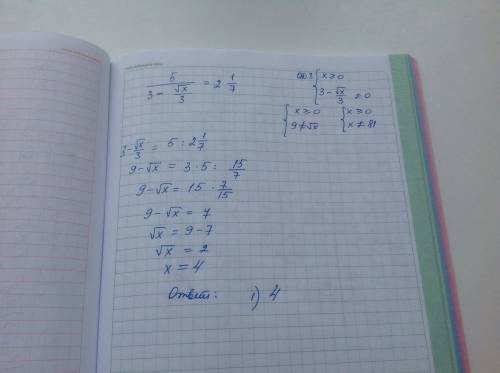 5 / (3 − √x/3) = 2 1/7
ОДЗ { x ≥ 0
3 − √x/3 ≠ 0
{ x ≥ 0
9 ≠ √x
{ x ≥ 0
x ≠ 81
3 − √x/3 = 5 : 2 1/7
9 − √x = 3 · 5 : 15/7
9 − √x = 15 · 7/15
9 − √x = 7
√x = 9 − 7
√x = 2
x = 4
Ответ: 1) 4